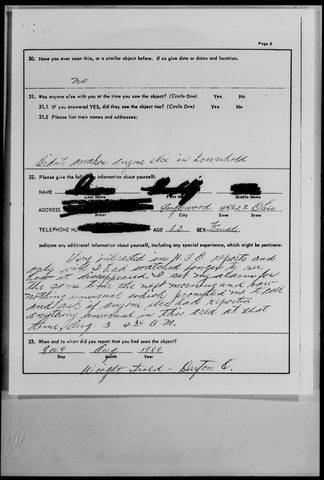 Page 5
30. Have you ever seen this, or a similar object before. If so give date or dates and location.
no
31. Was anyone else with you at the time you saw the object? (Circle One) Yes No
31.1 If you answered YES, did they see the object too? (Circle One) Yes No
31.2 Please list their names and addresses:
Didn't awaken anyone else in household
32. Please give the following information about yourself:
NAME
Last Name First Name Middle Name
ADDRESS Englewood 45322 Ohio
Street City Zone State
TELEPHONE NU AGE SEX Female
Indicate any additional information about yourself, including any special experience, which might be pertinent.
Very interested in U.F.O. reports and
only wish I had watched longer to see
how it disappeared. I set my alarm for
the same time the next morning and saw
nothing unusual which prompted me to call
and ask if anyone else had reported
anything unusual in this area at that
time. Aug 3 4:30 A.M.
33. When and to whom did you report that you had seen the object?
Aug 1966
Day Month Year
Wright Field - Dayton O.